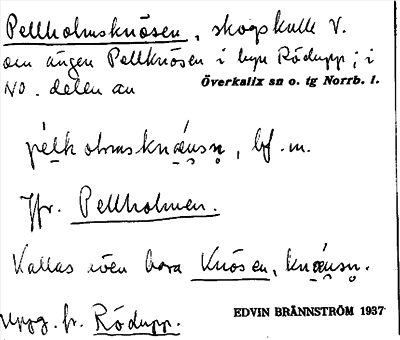 Pellholmsknösen, skogskulle V.
om ängen Pellknösen i byn Rödupp; i
NO. delen av
Överkalix sn o. tg Norrb. l.
pélkholmsknǿusn̥, bf. m.
Jfr. Pellholmen.
Kallas även bara Knösen, knǿusn̥.
Uppg. fr. Rödupp.
EDVIN BRÄNNSTRÖM 1937